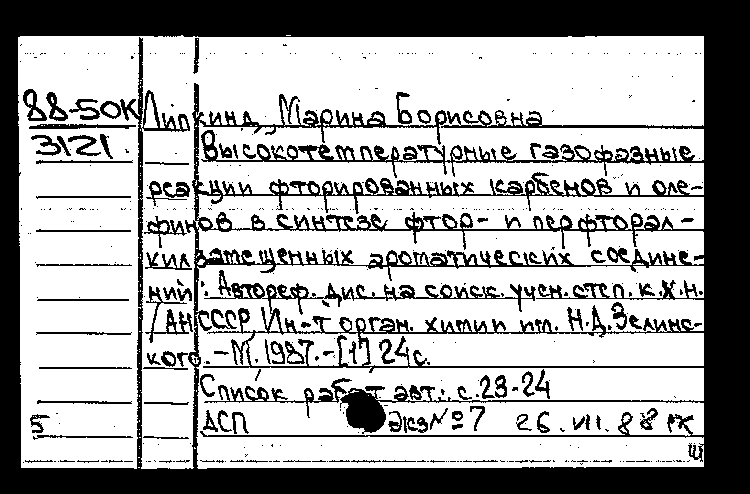 88-50К Липкинд, Марина Борисовна
3121. Высокотемпературные газофазные
реакции фторированных карбенов и оле-
финов в синтезе фтор- и перфторал-
килзамещенных ароматических соедине-
ний: Автореф. дис. на соиск. учен. степ. к.х.н.
/АН СССР, Ин-т орган. химии им. Н.Д. Зелинс-
кого. - М. 1987. - [1] 24 с.
Список работ авт.: с. 23-24
5 ДСП Экз № 7 26.VII.88 РК
Ш